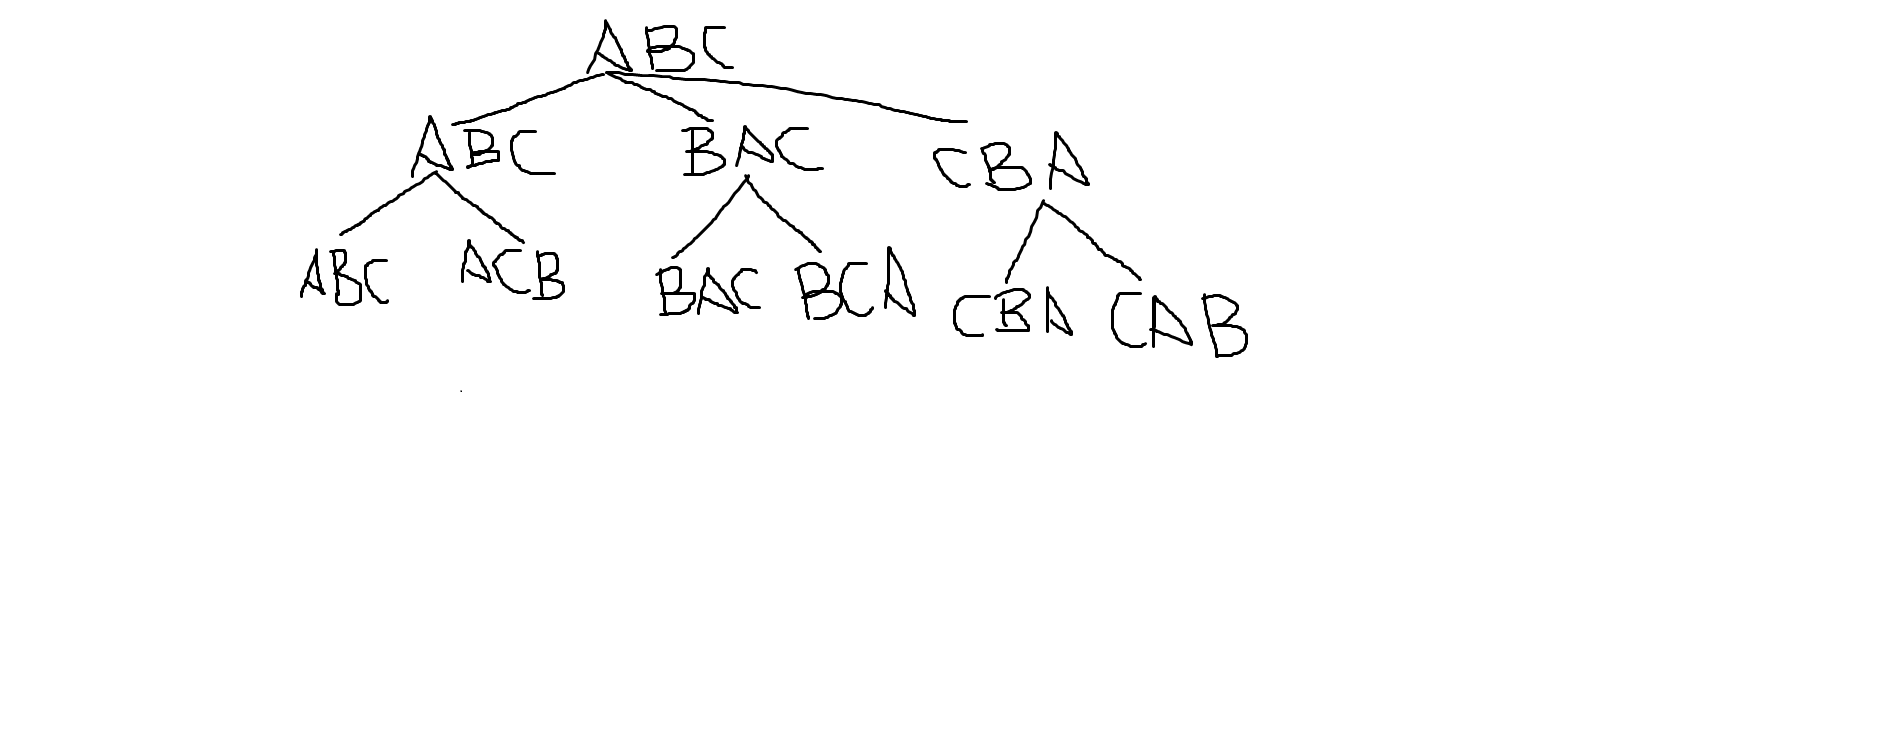 ABC
ABC BAC CBA
ABC ACB BAC BCA CBA CAB